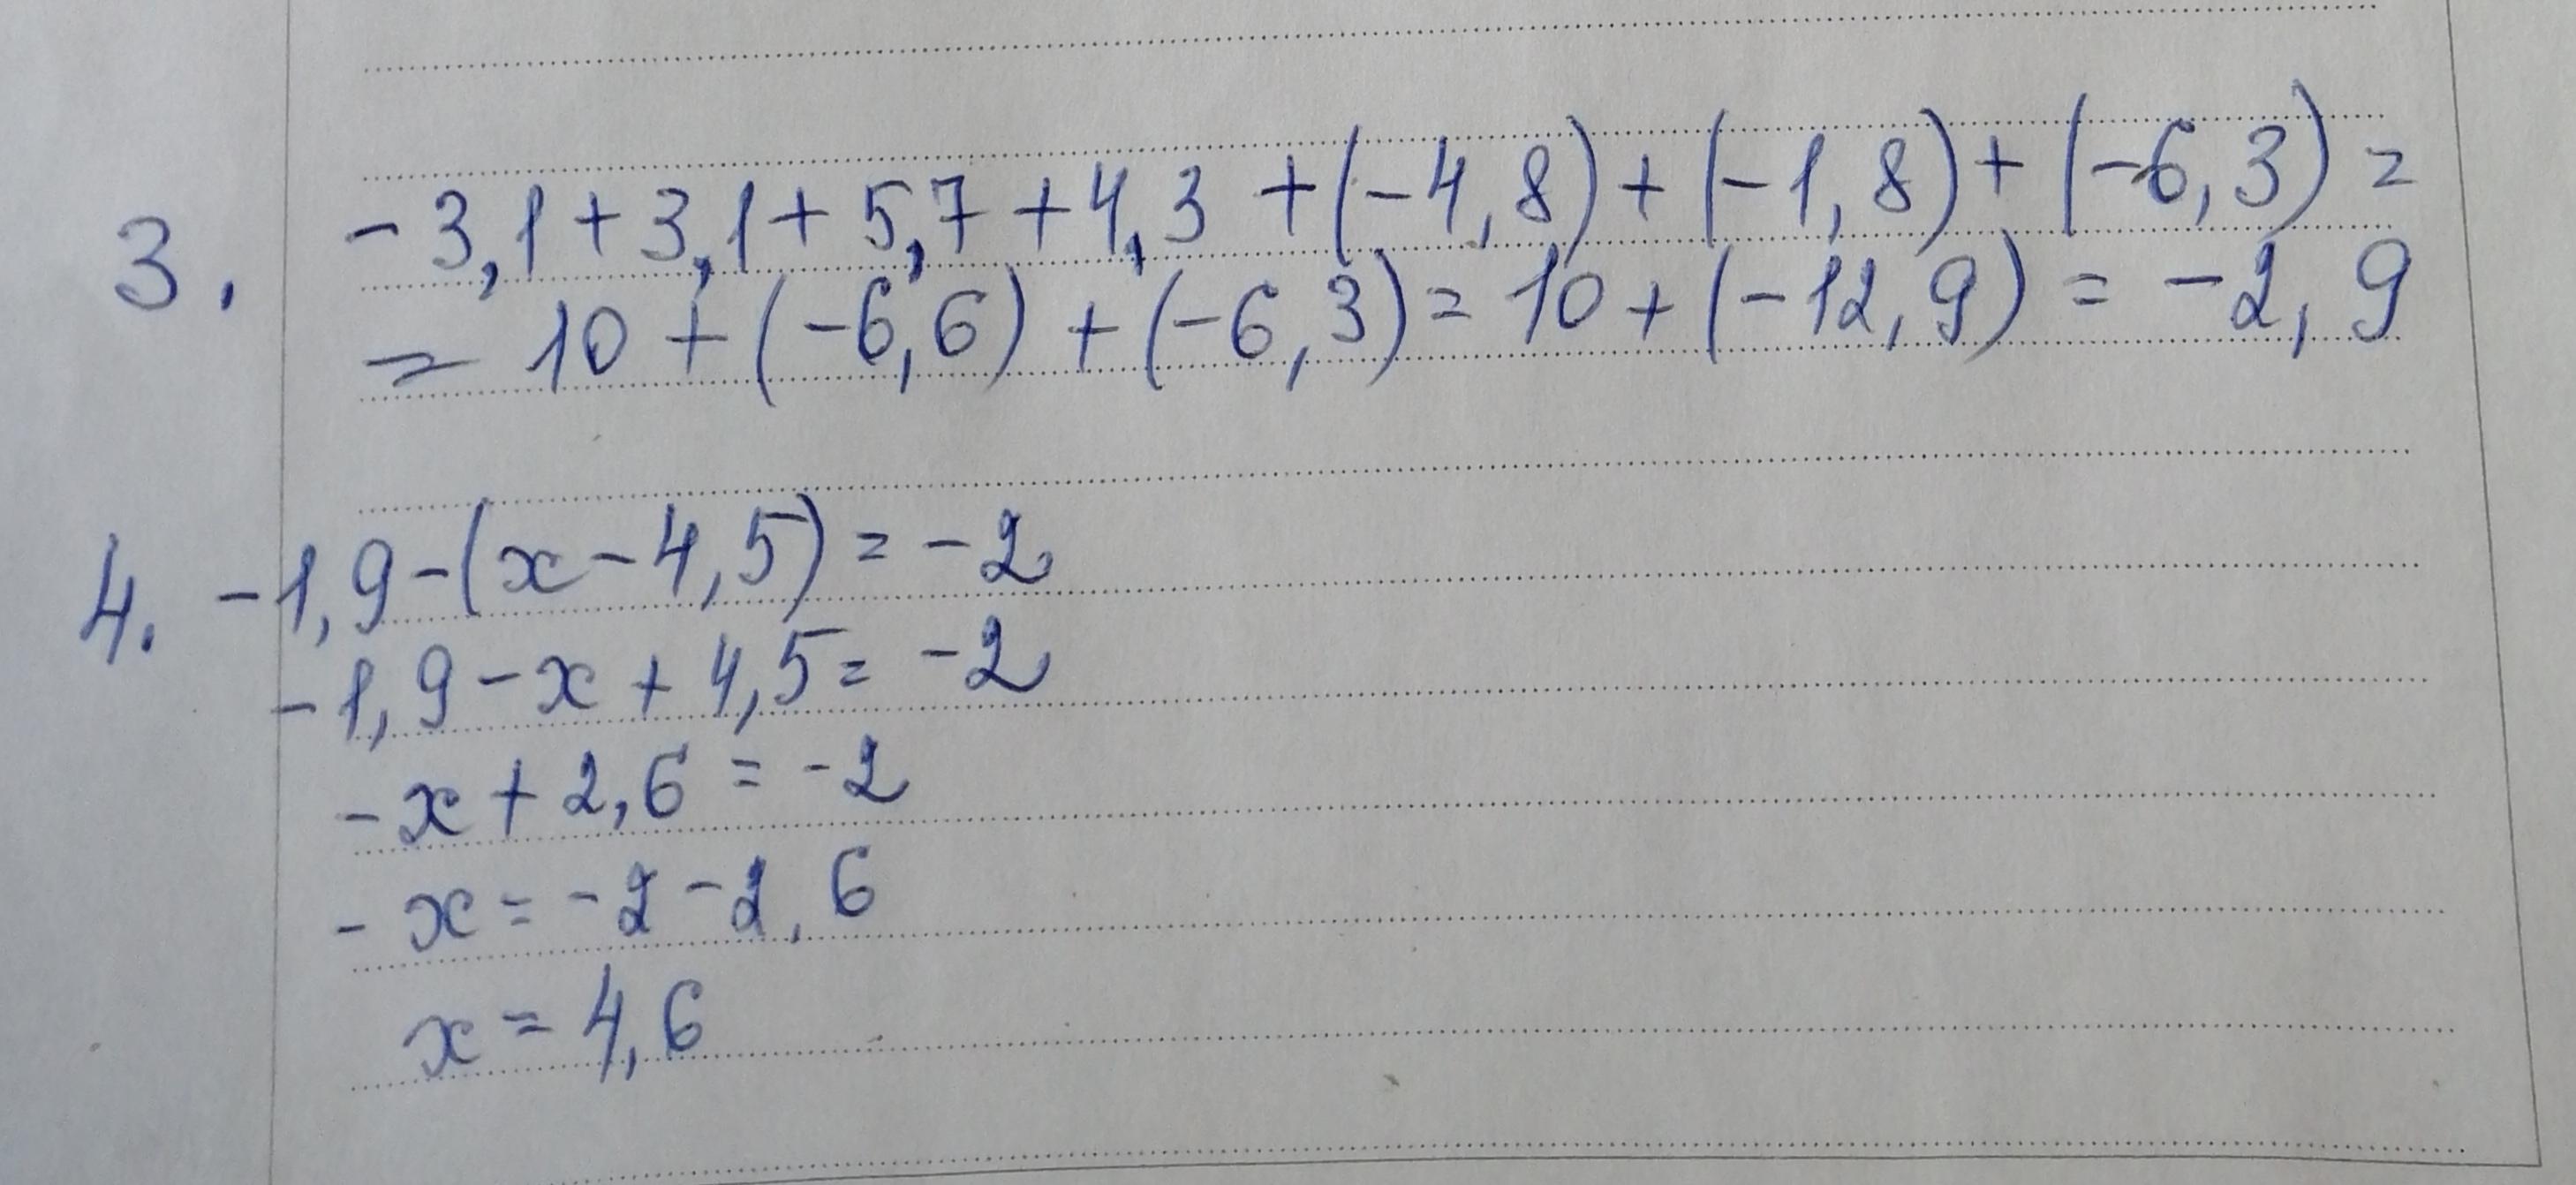 3. -3,1 + 3,1 + 5,7 + 4,3 + (-4,8) + (-1,8) + (-6,3) =
= 10 + (-6,6) + (-6,3) = 10 + (-12,9) = -2,9
4. -1,9 - (x - 4,5) = -2
-1,9 - x + 4,5 = -2
-x + 2,6 = -2
-x = -2 - 2,6
x = 4,6